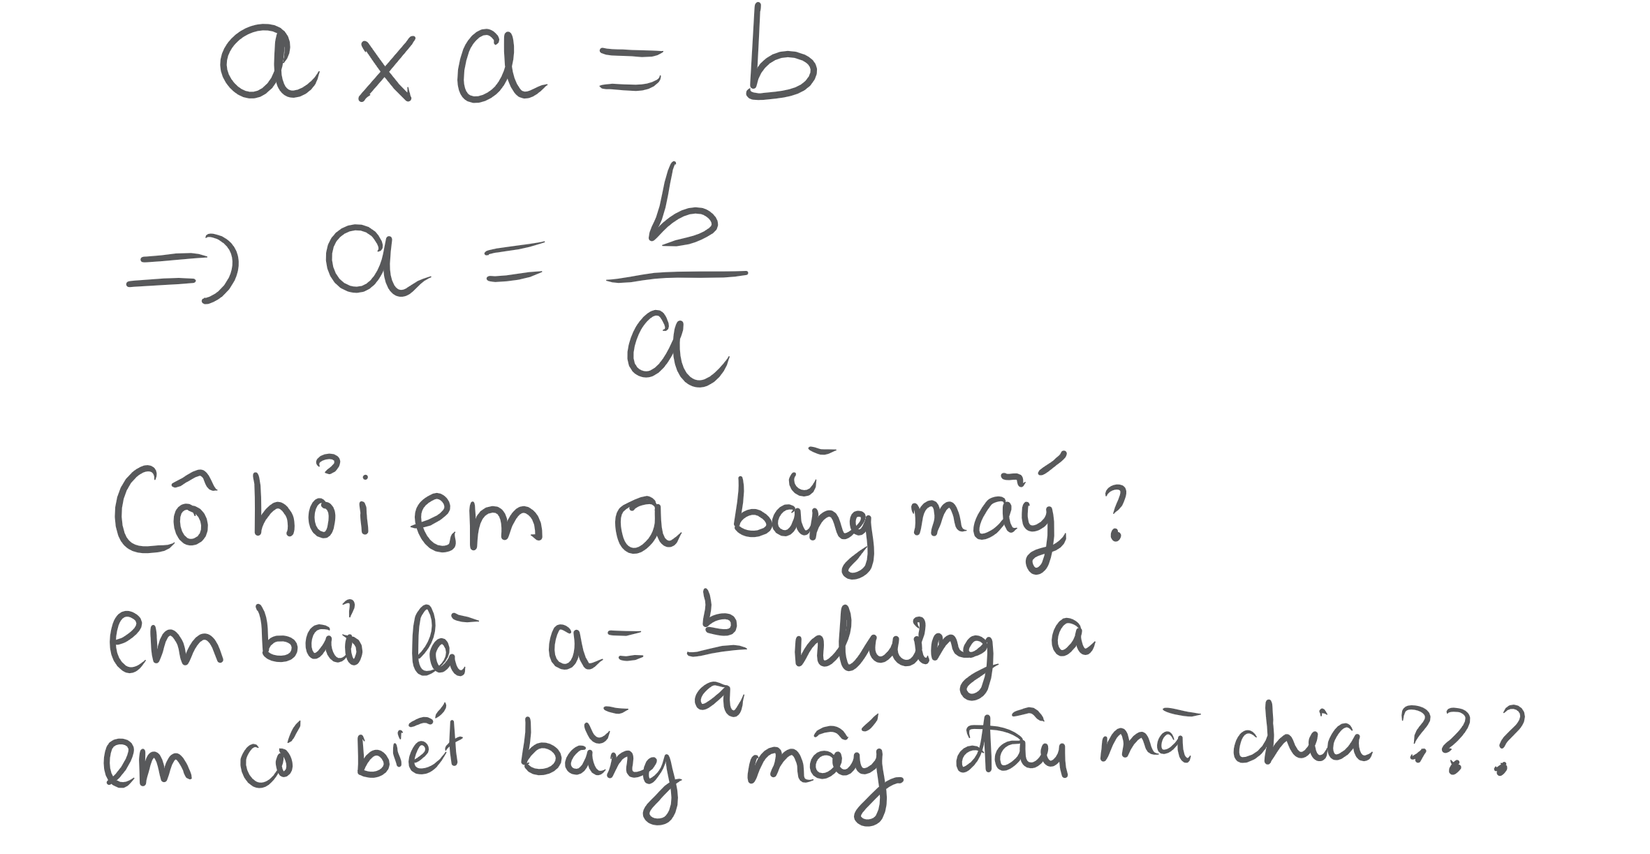 a × a = b
=> a = b/a
Cô hỏi em a bằng mấy ?
em bảo là a = b/a nhưng a
em có biết bằng mấy đâu mà chia ???